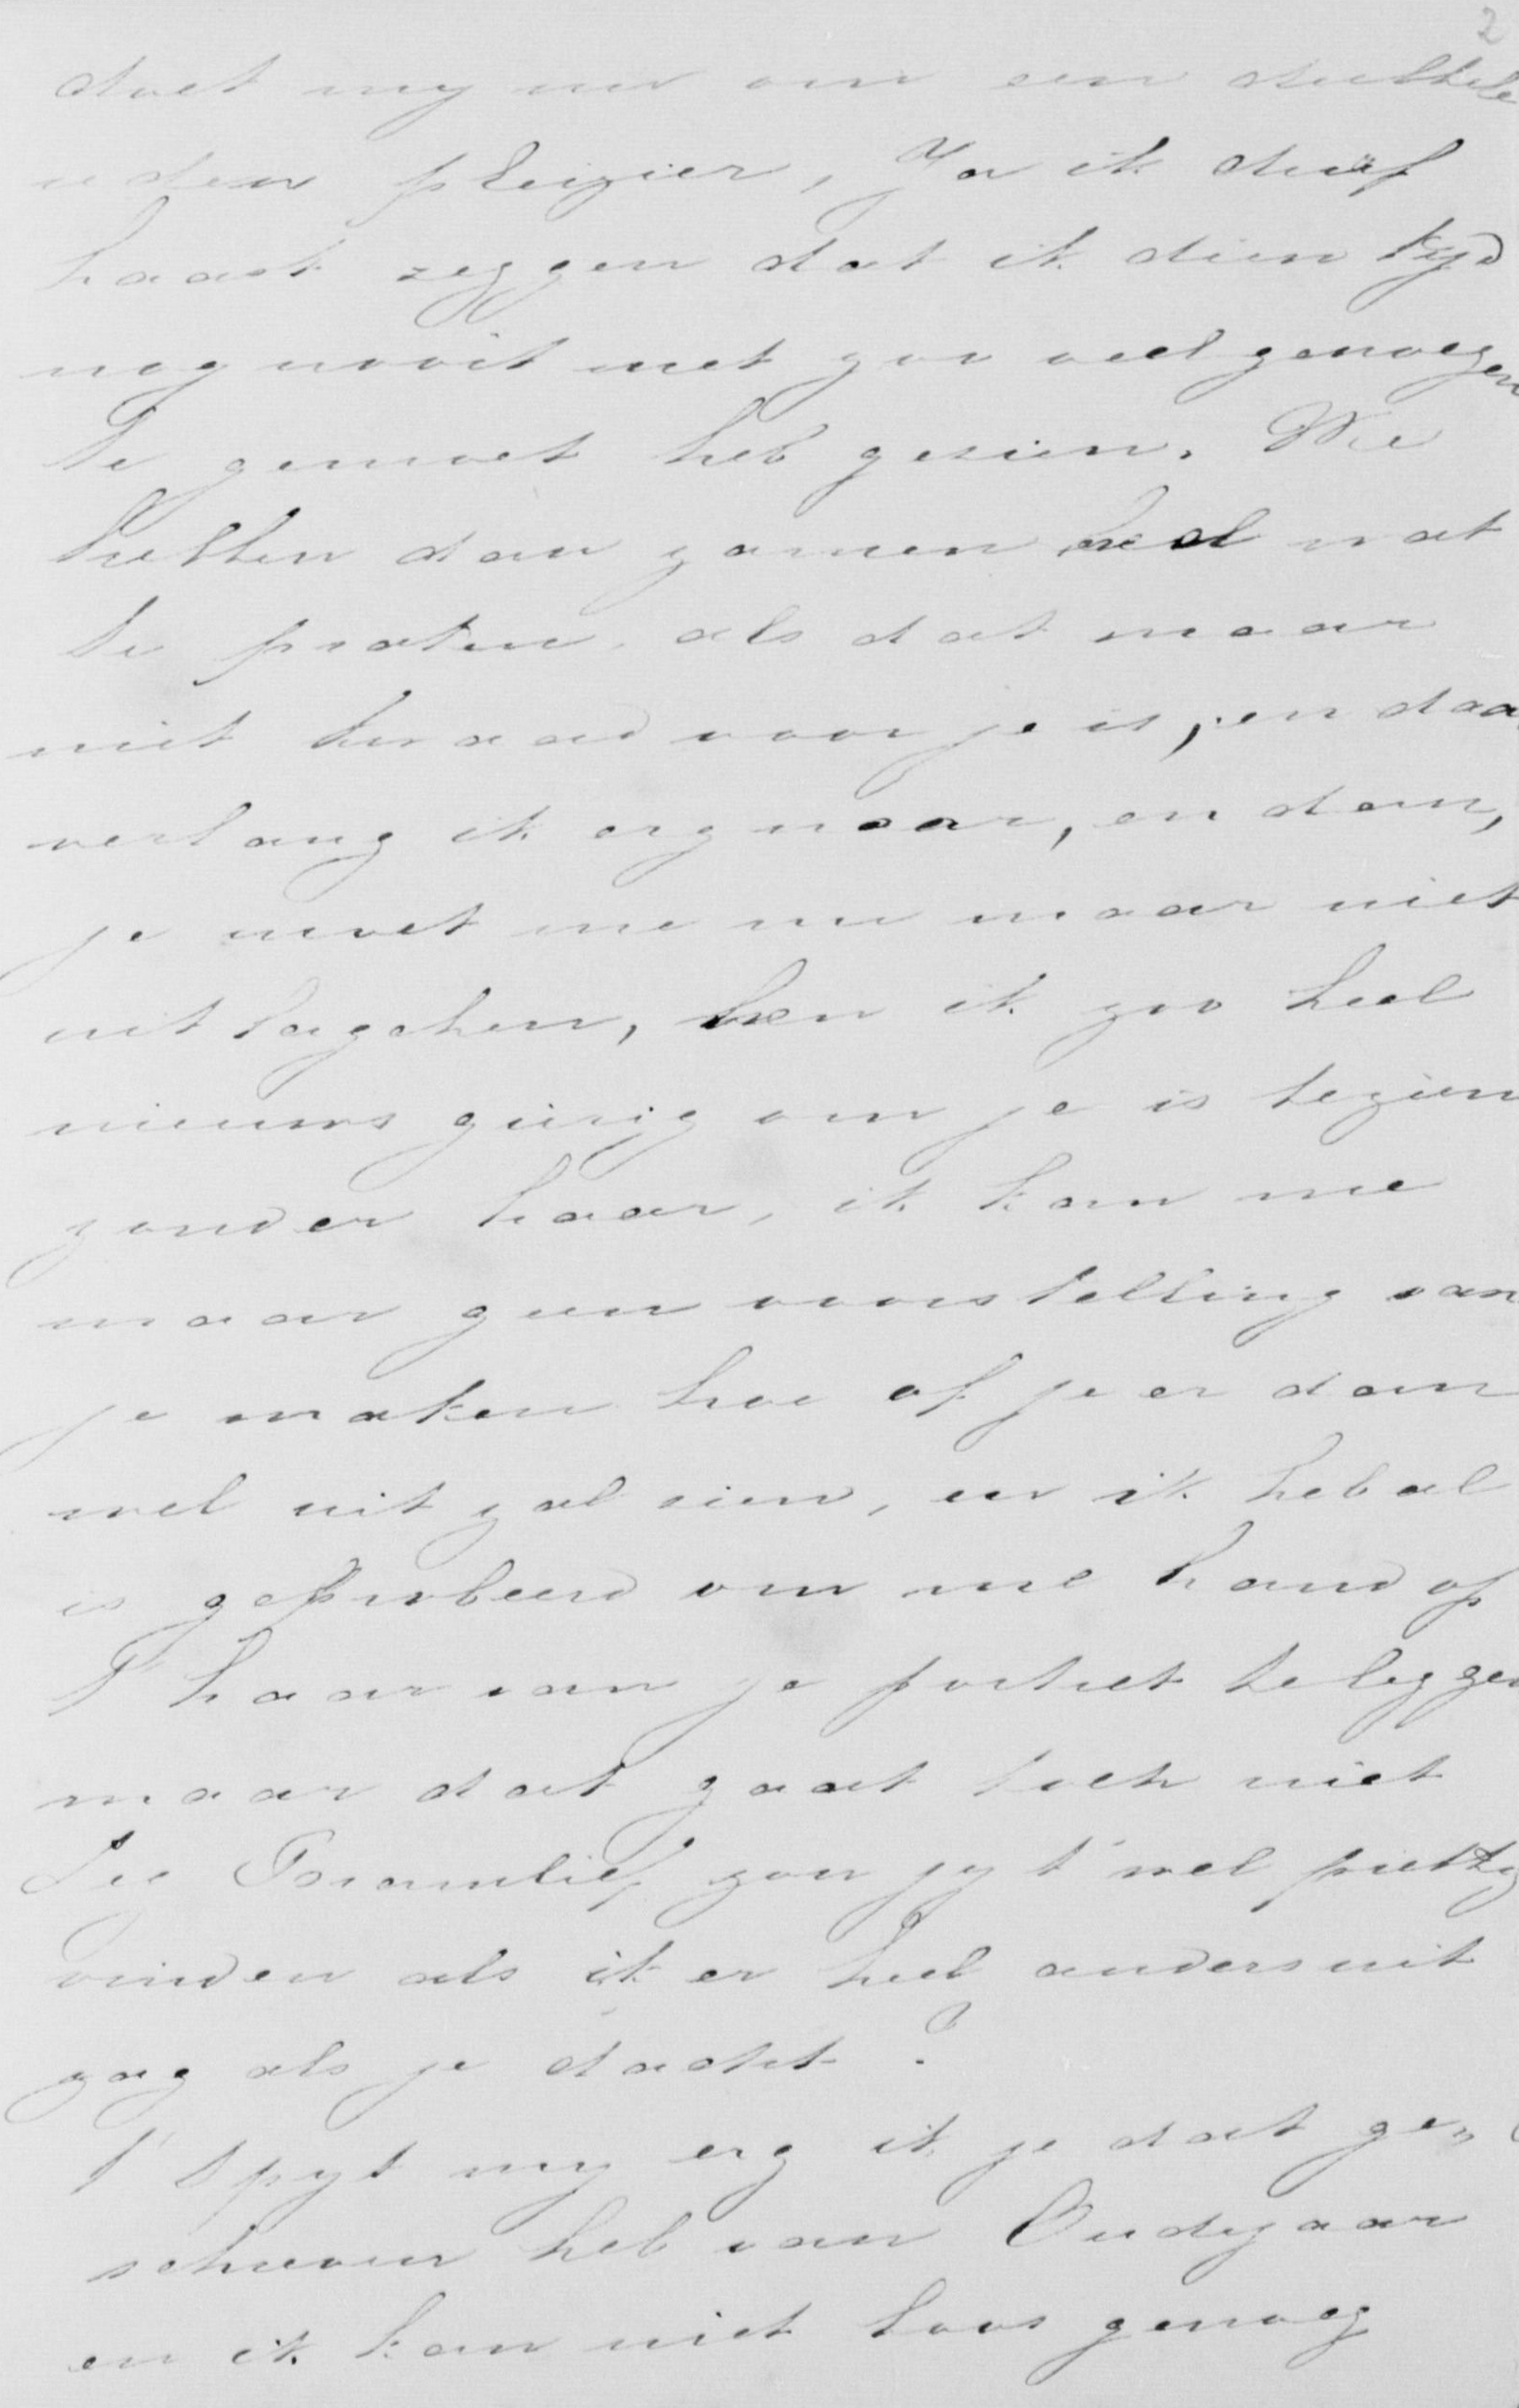 2
doet my nu om een dubbele
reden pleizier, Ja ik durf
haast zeggen dat ik dien tyd
nog nooit met zoo veel genoegen
te gemoet heb gezien. We
hebben dan zamen heel wat
te praten, als dat maar
niet kwaad voor je is, en daa
verlang ik erg naar, en dan,
je moet me nu maar niet
uit lagchen, ben ik zoo heel
nieuws gierig om je is tezien
zonder haar, ik kan me
maar geen voorstelling van
je maken hoe of je er dan
wel uit zal zien, en ik heb al
is geprobeerd om me hand op
T haar van je portret te leggen
maar dat gaat toch niet
Zeg Bramlief zou jy t' wel prettig
vinden als ik er heel anders uit
zag als je dacht?
T' spyt my erg ik je dat ge,
schreven heb van Oudejaar
en ik kan niet boos genoeg